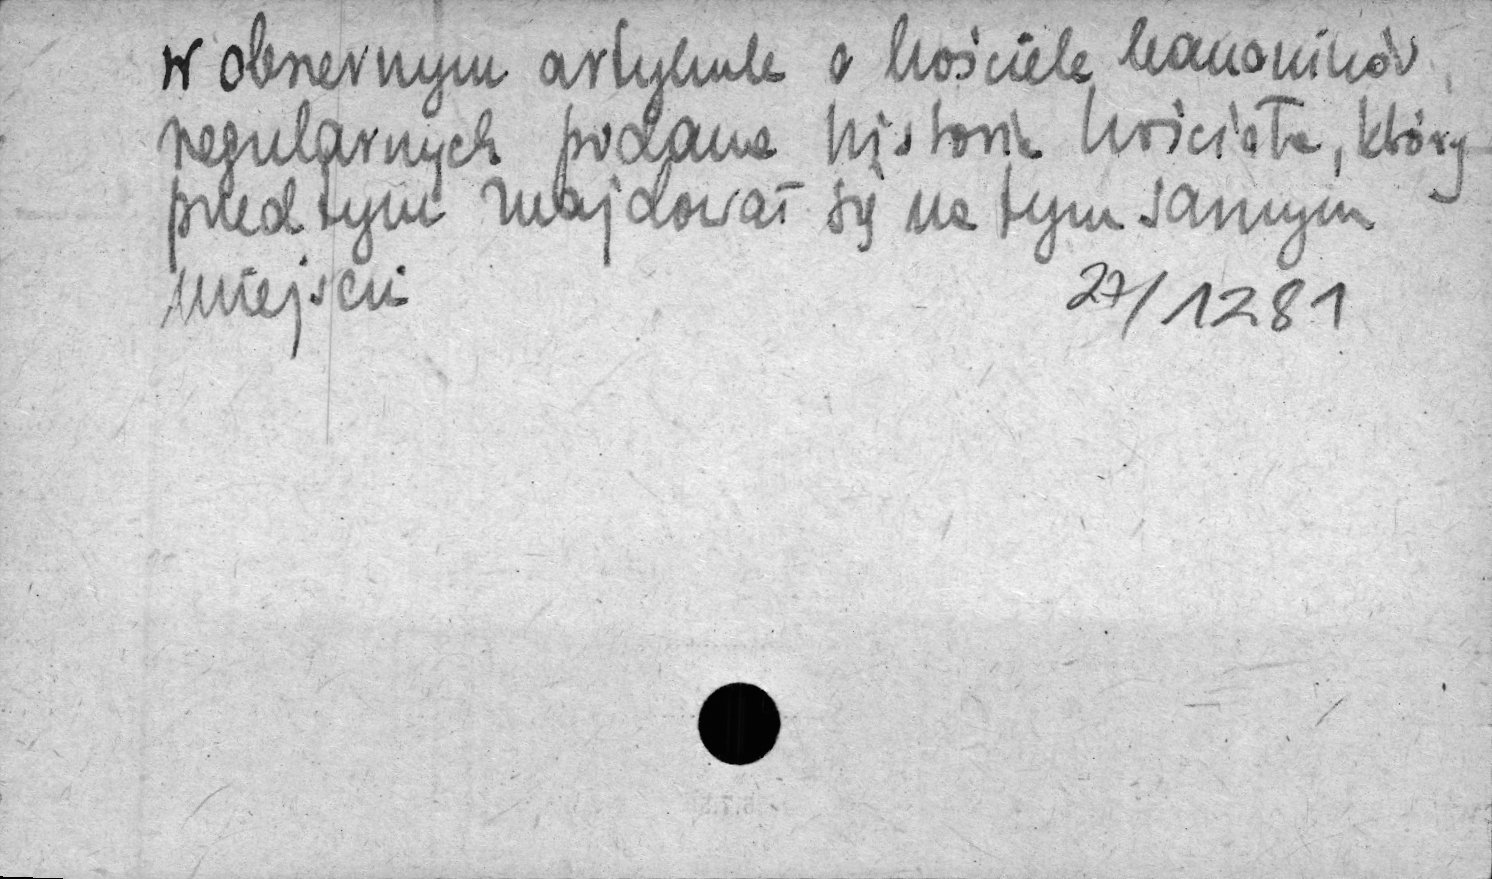 w obszernym artykule o kościele kanoników
regularnych podana historia kościoła, który
przedtym znajdował się na tym samym
miejscu 27/1281